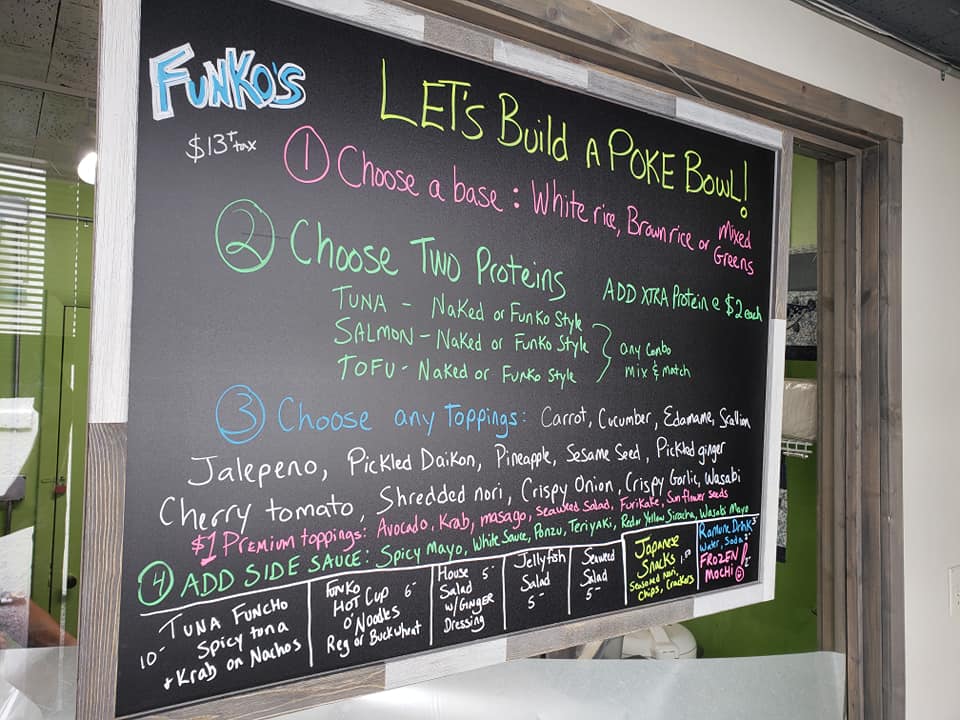 FUNKO'S
LET's Build A POKE BOWL!
$13 + tax
① Choose a base : White rice, Brown rice or Mixed Greens
② Choose Two Proteins
ADD XTRA Protein @ $2 each
TUNA - Naked or Funko Style
SALMON - Naked or Funko Style
TOFU - Naked or Funko Style
any combo
mix & match
③ Choose any Toppings: Carrot, Cucumber, Edamame, Scallion
Jalepeno, Pickled Daikon, Pineapple, Sesame Seed, Pickled ginger
Cherry tomato, Shredded nori, Crispy Onion, Crispy Garlic, Wasabi
$1 Premium toppings: Avocado, Krab, masago, Seaweed Salad, Furikake, Sunflower seeds
④ ADD SIDE SAUCE: Spicy Mayo, White Sauce, Ponzu, Teriyaki, Red or Yellow Siracha, Wasabi Mayo
TUNA FUNCHO
10- Spicy tuna
+ Krab on Nachos
Funko
HOT CUP 6-
O' Noodles
Reg or Buckwheat
House 5-
Salad
w/ GINGER
Dressing
Jellyfish
Salad
5-
Seaweed
Salad
5-
Japanese
Snacks 1.50
Seasoned Nori,
Chips, Crackers
Ramune Drink 3-
Water, Soda
FROZEN
MOCHI